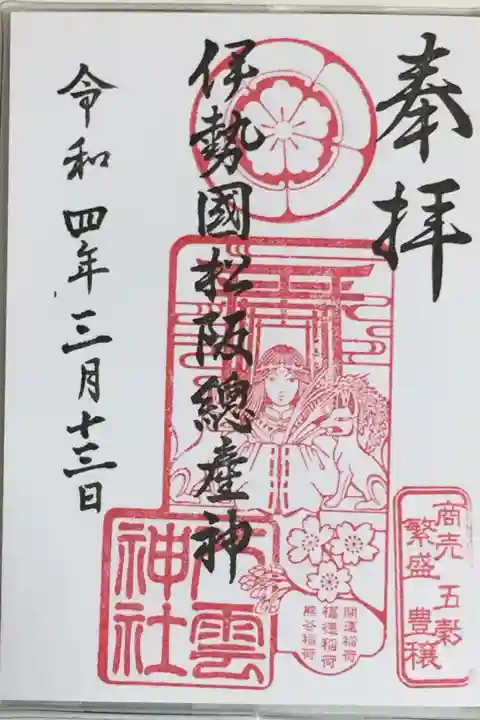 奉拝
伊勢國松阪總産神
八雲神社
開運稲荷
福徳稲荷
熊谷稲荷
商売繁盛
五穀豊穣
令和四年三月十三日